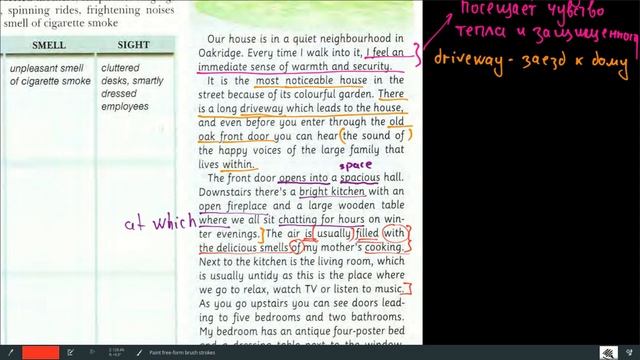 spinning rides, frightening noises
smell of cigarette smoke
SMELL
SIGHT
unpleasant smell
of cigarette smoke
cluttered
desks, smartly
dressed
employees
Our house is in a quiet neighbourhood in
Oakridge. Every time I walk into it, I feel an
immediate sense of warmth and security.
It is the most noticeable house in the
street because of its colourful garden. There
is a long driveway which leads to the house,
and even before you enter through the old
oak front door you can hear the sound of
the happy voices of the large family that
lives within.
space
The front door opens into a spacious hall.
Downstairs there's a bright kitchen with an
open fireplace and a large wooden table
at which
where we all sit chatting for hours on win-
ter evenings. The air is usually filled with
the delicious smells of my mother's cooking.
Next to the kitchen is the living room, which
is usually untidy as this is the place where
we go to relax, watch TV or listen to music.
As you go upstairs you can see doors lead-
ing to five bedrooms and two bathrooms.
My bedroom has an antique four-poster bed
посещает чувство
тепла и защищенно
driveway - заезд к дому
Paint free-form brush strokes